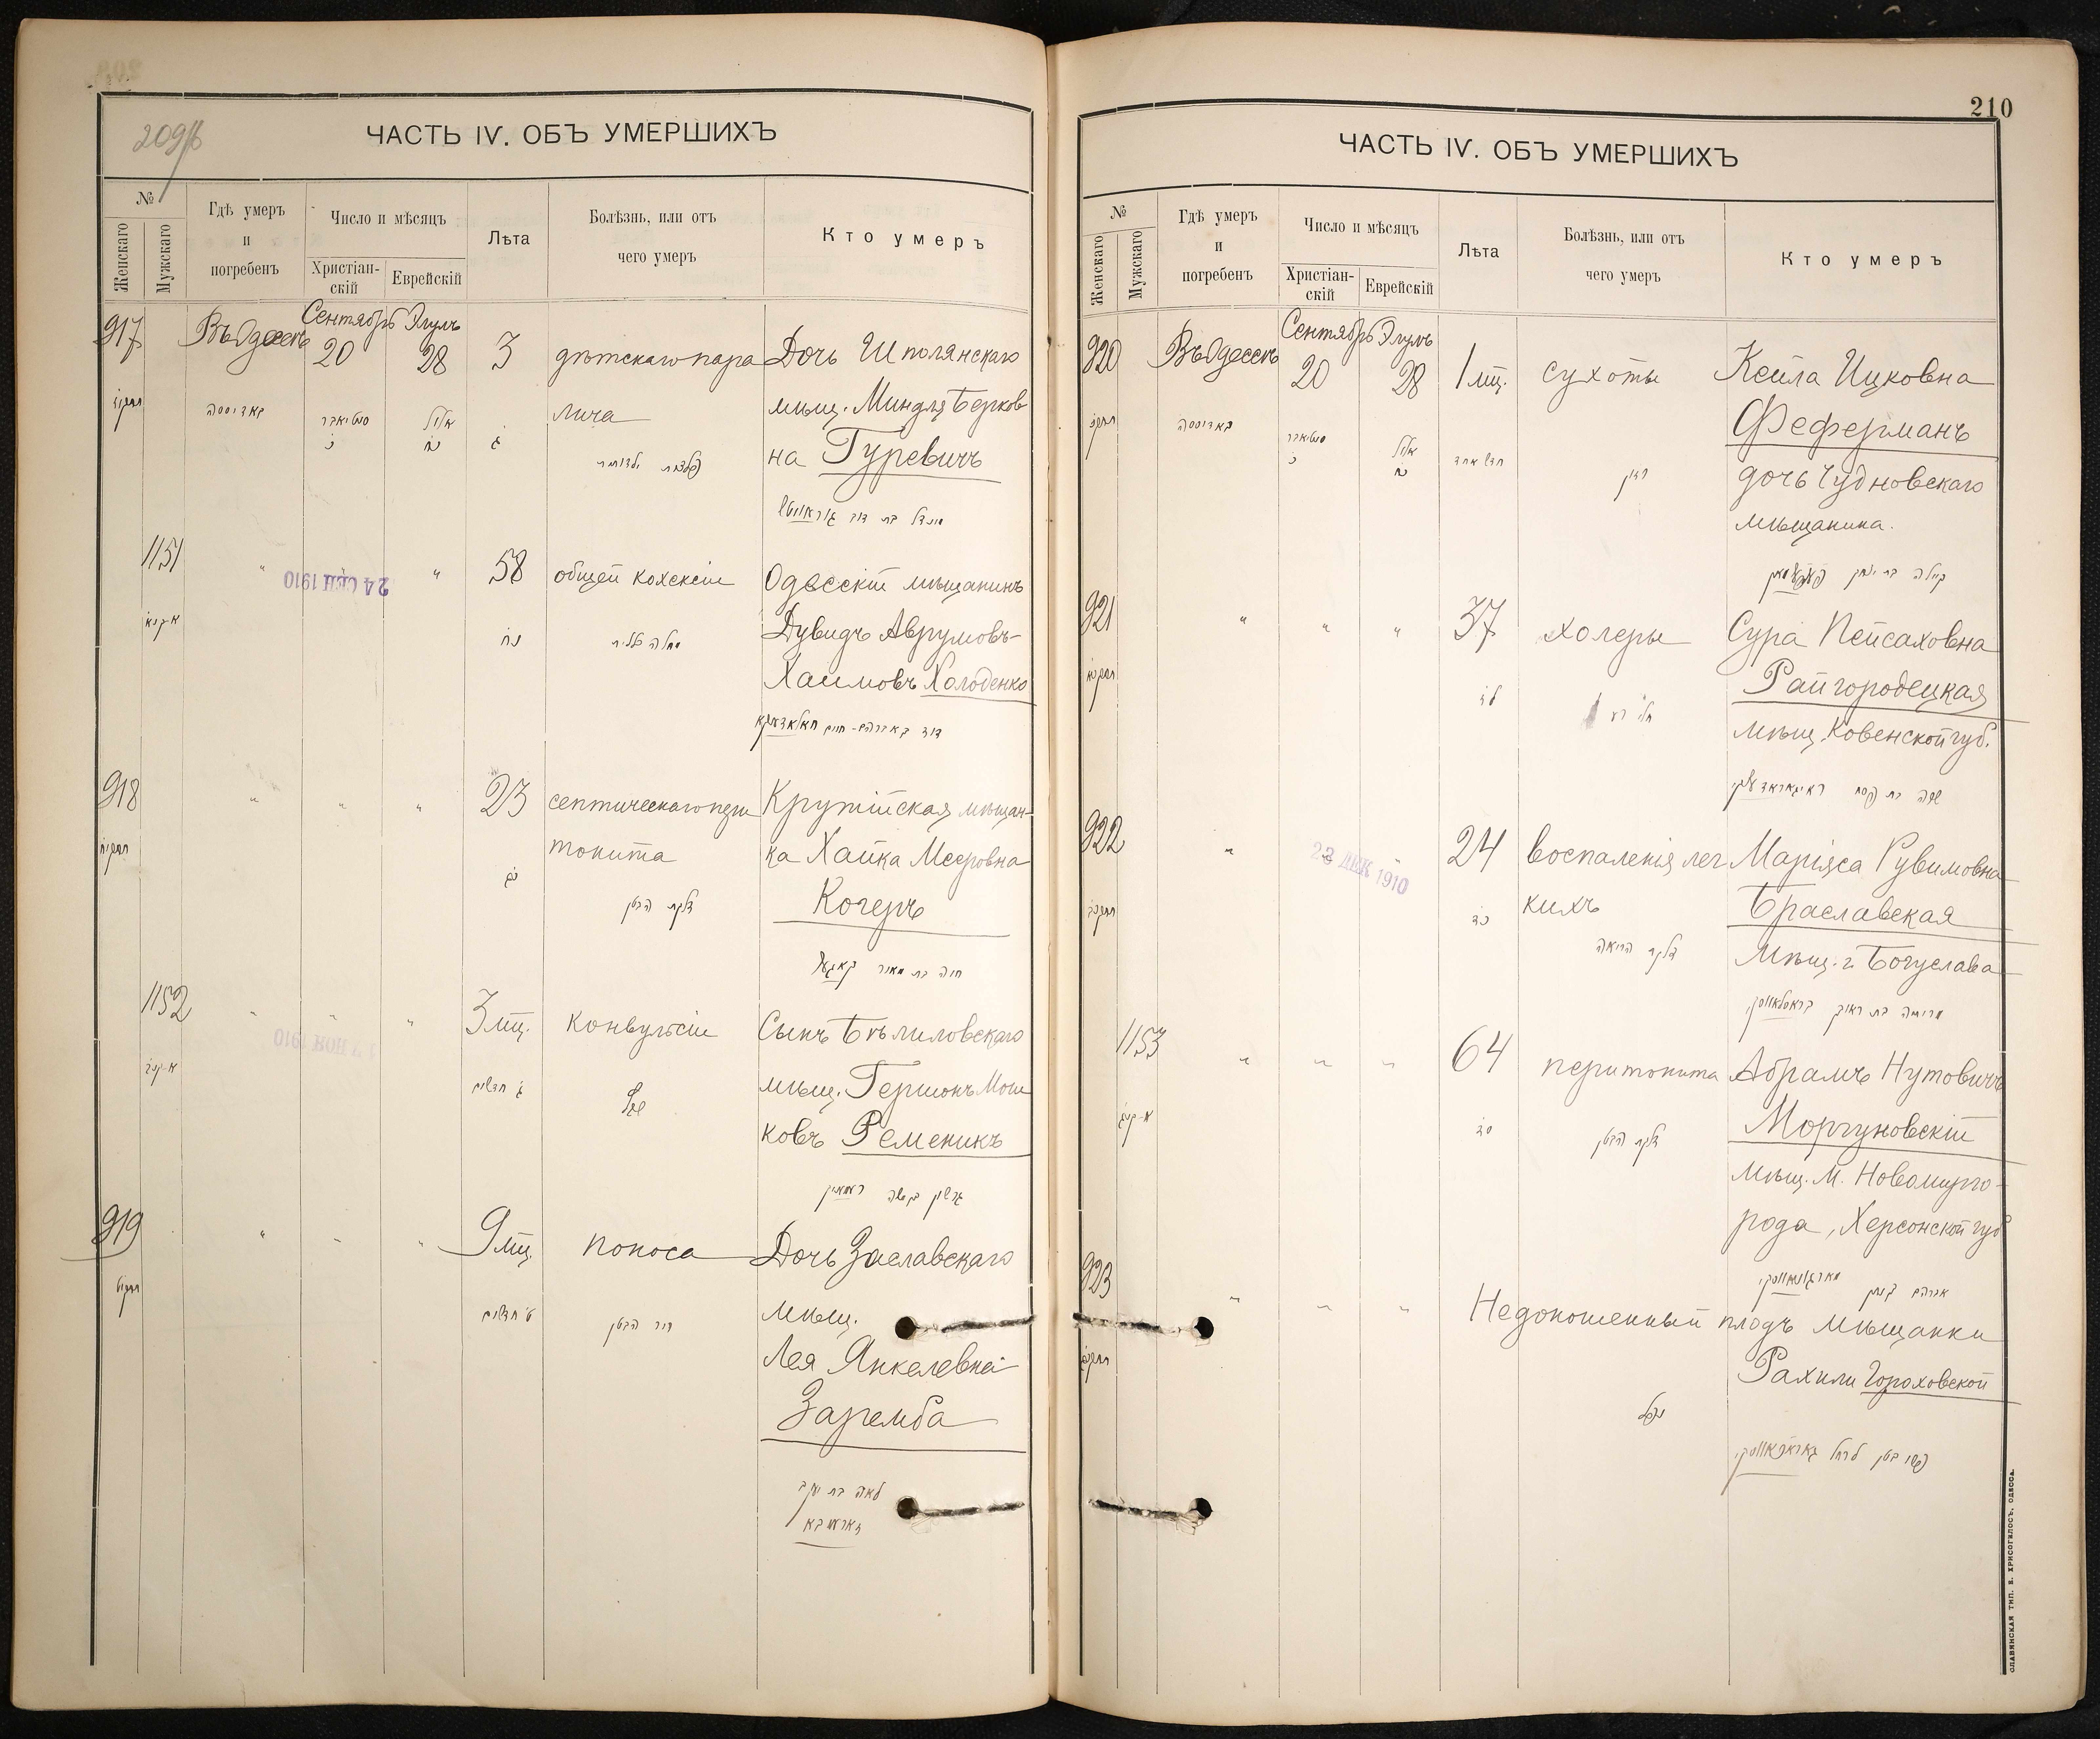 209/б
ЧАСТЬ IV. ОБЪ УМЕРШИХЪ
№
Женскаго
Мужскаго
Гдѣ умеръ
и
погребенъ
Число и мѣсяцъ
Христіан-
скій
Еврейскій
Лѣта
Болѣзнь, или отъ
чего умеръ
Кто умеръ
917 Въ Одессѣ Сентябрь 20 Элулъ 28 3 дѣтскаго пара Дочь Шполянскаго
лича мѣщ. Миндля Берков
באדיססה אלול כח ג
на Гуревичъ
1151 " 24 СЕН 1910 " 58 общей кохексіи Одесскій мѣщанинъ
נח Дувидъ Аврумовъ-
Хаимовъ Холоденко
918 " " " 23 септическаго пери Крутійская мѣщан-
тонита ка Хайка Мееровна
כג דלקת הבטן Когеръ
1152 " " " 3 мц. конвульсіи Сынъ Бѣлиловскаго
17 НОЯ 1910
ג׳ חדשים мѣщ. Гершонъ Мош
ковъ Ременикъ
919 " " " 9 мц. поноса Дочь Заславскаго
ט׳ חדשים мѣщ.
Лея Янкелевна
Заремба
לאה בת יעקב
זארעמבא
210
ЧАСТЬ IV. ОБЪ УМЕРШИХЪ
№
Женскаго
Мужскаго
Гдѣ умеръ
и
погребенъ
Число и мѣсяцъ
Христіан-
скій
Еврейскій
Лѣта
Болѣзнь, или отъ
чего умеръ
Кто умеръ
920 Въ Одессѣ Сентябрь 20 Элулъ 28 1 мц. сухоты Кейла Ицковна
Феферманъ
באדיססה אלול כח חדש אחד רזון
дочь Чудновскаго
мѣщанина.
921 " " " 37 холеры Сура Пейсаховна
Райгородецкая
לז חלי רע
мѣщ. Ковенской губ.
922 " " " 24 воспаленія лег Маріяса Рувимовна
23 ДЕК 1910
кихъ Браславская
כד דלקת הריאה
мѣщ. г. Богуслава
1153 " " " 64 перитонита Абрамъ Нутовичъ
סד דלקת הבטן Моргуновскій
мѣщ. м. Новомирго-
рода, Херсонской губ
923 " " " Недоношенный плодъ мѣщанки
Рахили Гороховской
נפל
СЛАВЯНСКАЯ ТИП. Е. ХРИСОГЕЛОСЪ. ОДЕССА.